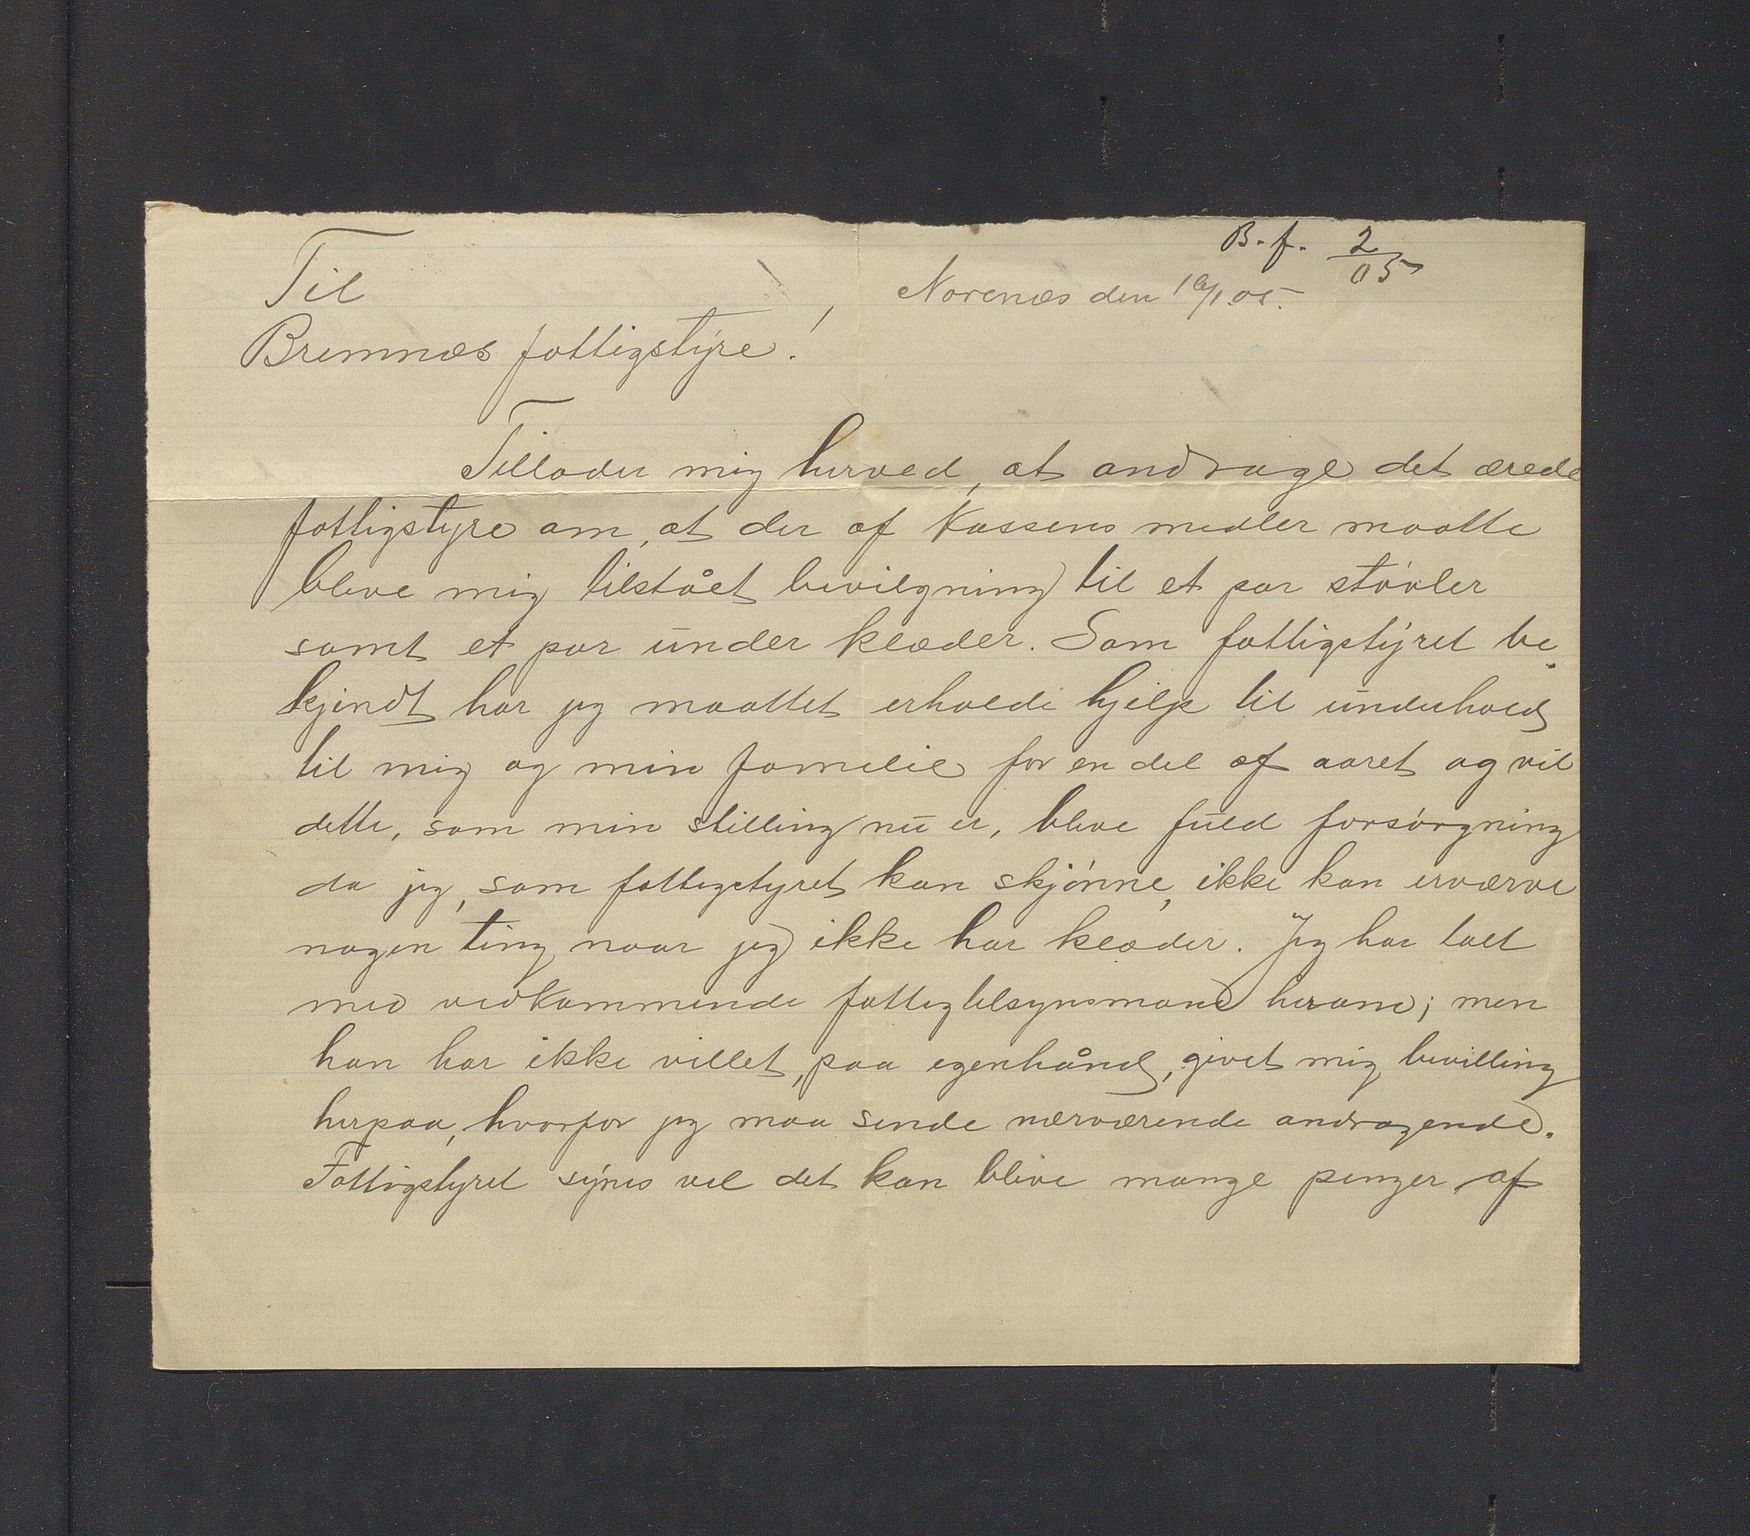 B. f. 2/05
Til
Norenæs den 16/1 05.
Bremnæs fattigstyre!
Tillader mig herved, at andrage det ærede
fattigstyre om, at der af Kassens midler maatte
blive mig tilstået bevilgning til et par støvler
samt et par under klæder. Som fattigstyret be-
kjendt har jeg maattet erholde hjelp til underhold
til mig og min familie for en del af aaret og vil
dette, som min stilling nu er, blive fuld forsørgning
da jeg, som fattigstyret kan skjønne, ikke kan erværve
nogen ting naar jeg ikke har klæder. Jeg har talt
med vedkommende fattigtilsynsmand herom; men
han har ikke villet, paa egenhånd, givet mig bevilling
herpaa, hvorfor jeg maa sende nærværende andragende.
Fattigstyret synes vel det kan blive mange penger af